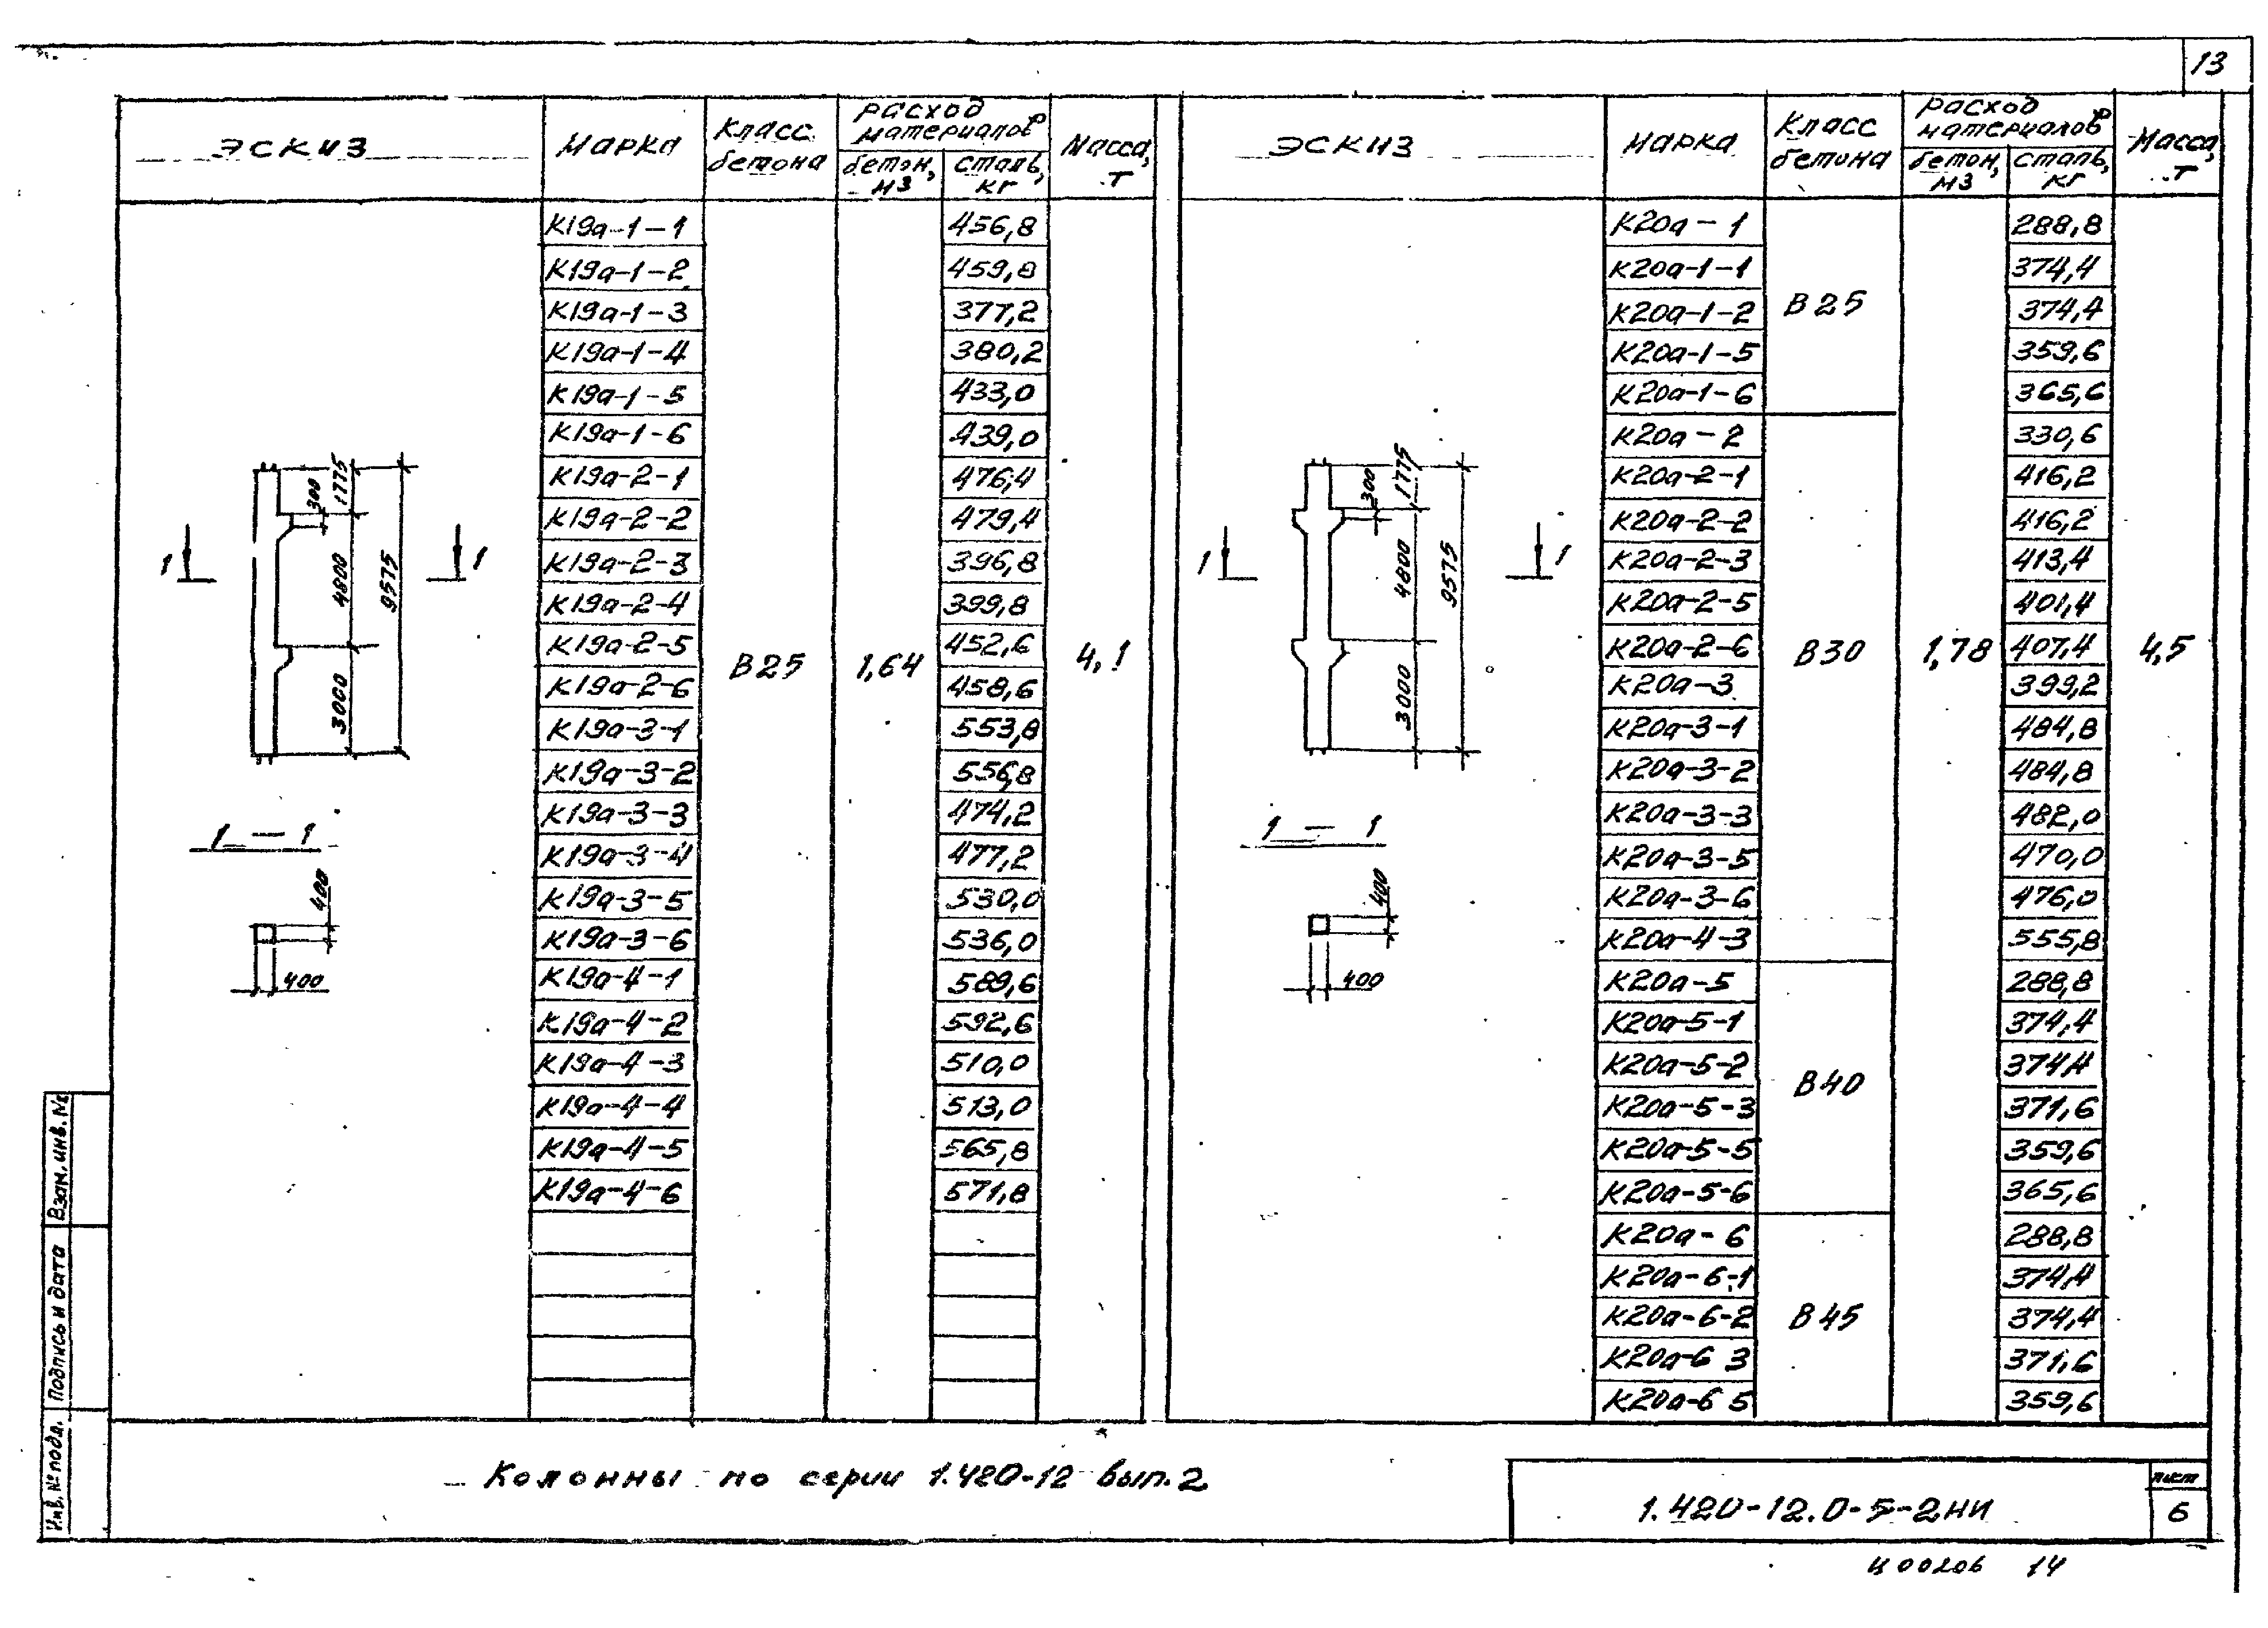 13
Эскиз Марка Класс бетона Расход материалов бетон, м3 сталь, кг Масса, т
К19а-1-1 456,8
К19а-1-2 459,8
К19а-1-3 377,2
К19а-1-4 380,2
К19а-1-5 433,0
К19а-1-6 439,0
К19а-2-1 476,4
К19а-2-2 479,4
К19а-2-3 396,8
К19а-2-4 399,8
К19а-2-5 452,6
К19а-2-6 458,6
В25 1,64 4,1
К19а-3-1 553,8
К19а-3-2 556,8
К19а-3-3 474,2
К19а-3-4 477,2
К19а-3-5 530,0
К19а-3-6 536,0
К19а-4-1 589,6
К19а-4-2 592,6
К19а-4-3 510,0
К19а-4-4 513,0
К19а-4-5 565,8
К19а-4-6 571,8
300 1775
4800 9575
3000
1 1
1 — 1
400
400
Эскиз Марка Класс бетона Расход материалов бетон, м3 сталь, кг Масса, т
К20а-1 288,8
К20а-1-1 374,4
К20а-1-2 В25 374,4
К20а-1-5 359,6
К20а-1-6 365,6
К20а-2 330,6
К20а-2-1 416,2
К20а-2-2 416,2
К20а-2-3 413,4
К20а-2-5 401,4
К20а-2-6 В30 1,78 407,4 4,5
К20а-3 399,2
К20а-3-1 484,8
К20а-3-2 484,8
К20а-3-3 482,0
К20а-3-5 470,0
К20а-3-6 476,0
К20а-4-3 555,8
К20а-5 288,8
К20а-5-1 374,4
К20а-5-2 В40 374,4
К20а-5-3 371,6
К20а-5-5 359,6
К20а-5-6 365,6
К20а-6 288,8
К20а-6-1 374,4
К20а-6-2 В45 374,4
К20а-6 3 371,6
К20а-6 5 359,6
300 1775
4800 9575
3000
1 1
1 — 1
400
400
Взам. инв. №
Подпись и дата
Инв. № подл.
Колонны по серии 1.420-12 вып.2
1.420-12.0-5-2НИ
лист
6
Ц00206 14